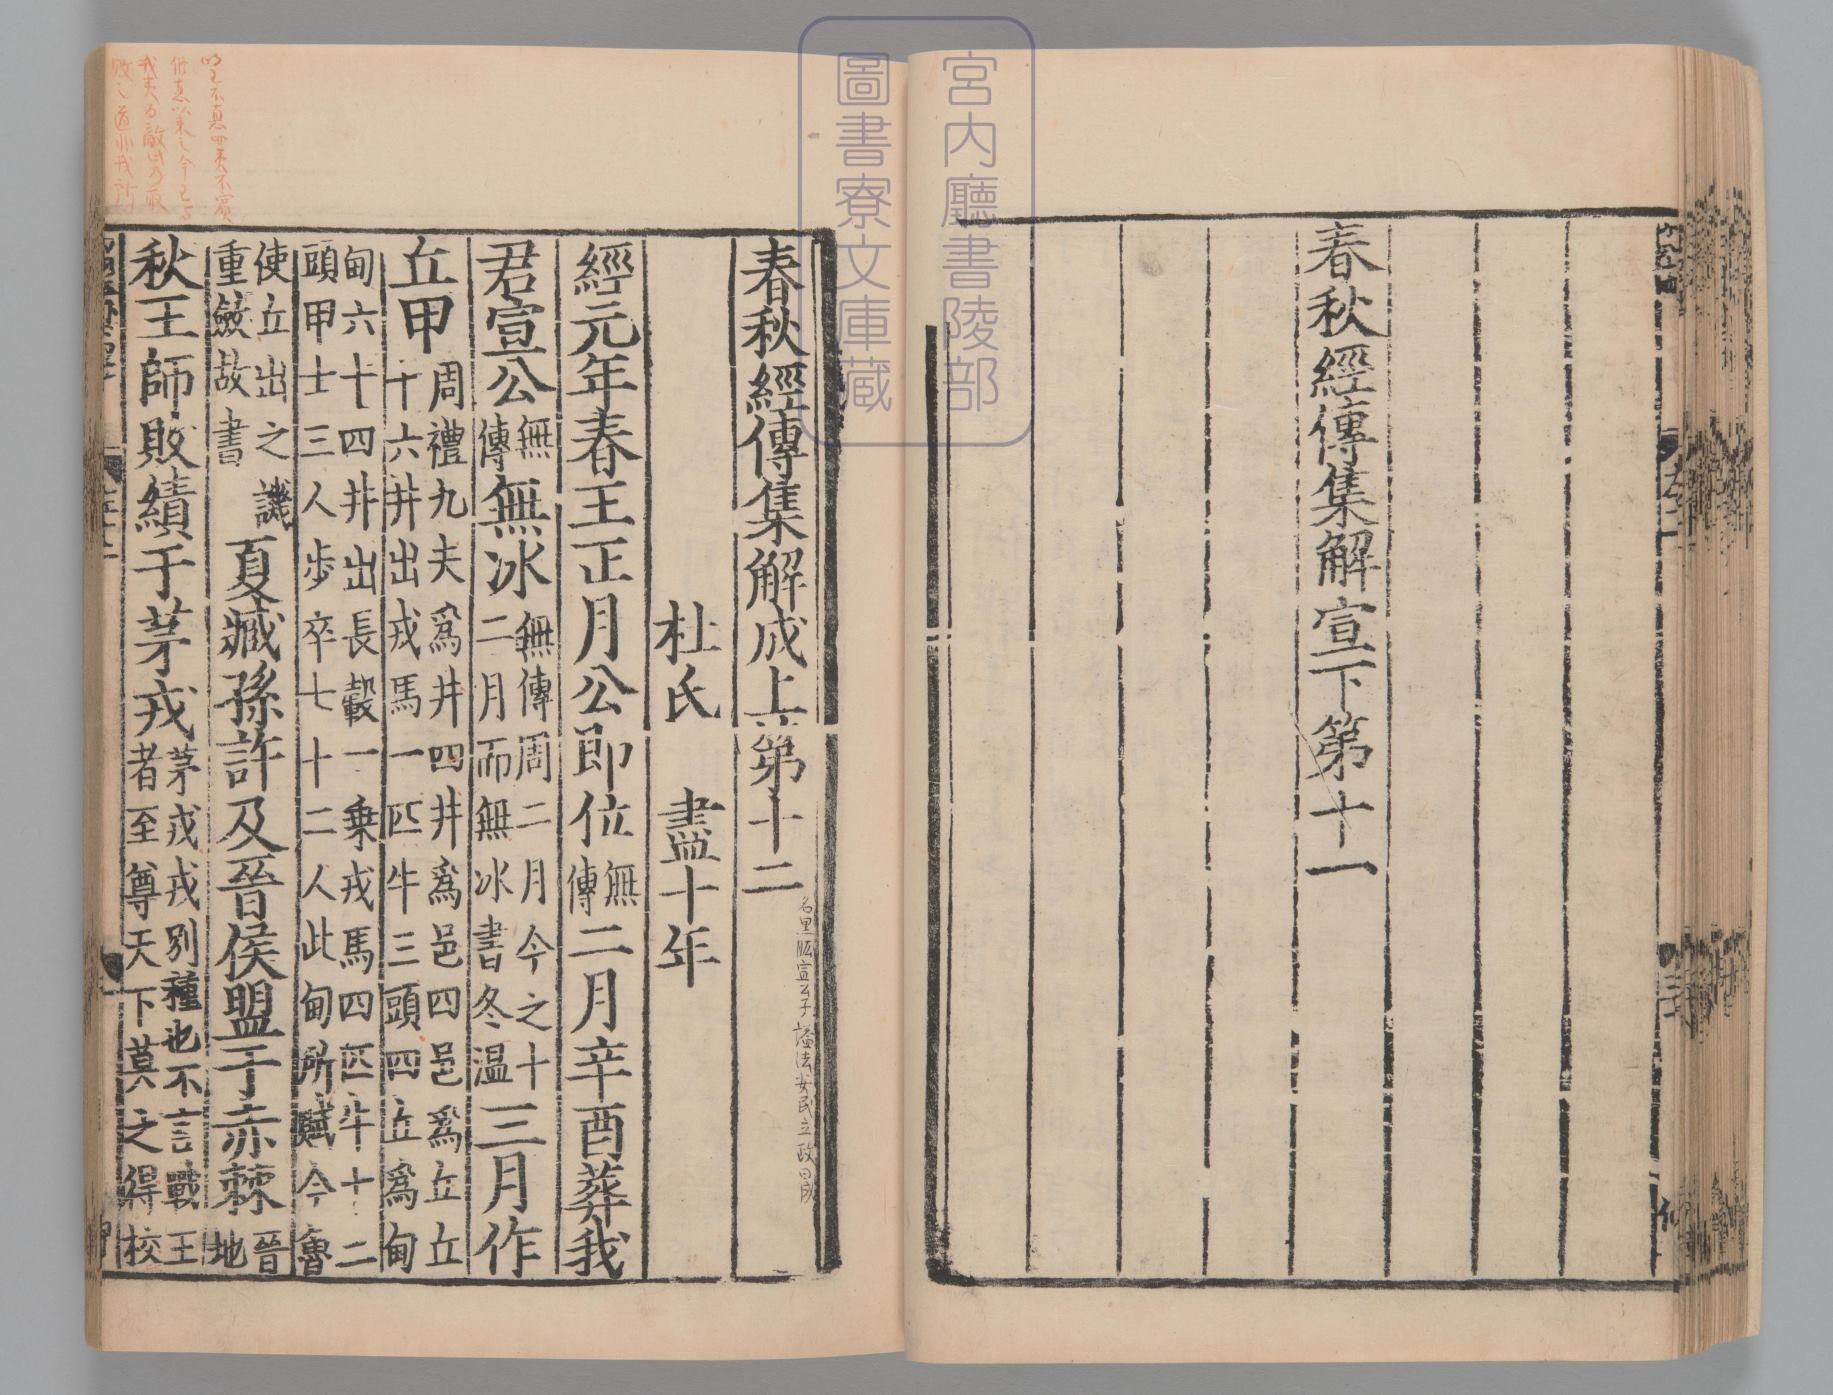 春秋經傳集解宣下第十一
宮內廳書陵部
圖書寮文庫藏
春秋經傳集解成上第十二
名黑肱宣公子謚法安民立政曰成
杜氏 盡十年
經元年春王正月公即位無傳二月辛酉葬我
君宣公無傳無冰無傳周二月今之十二月而無冰書冬溫三月作
丘甲周禮九夫爲井四井爲邑四邑爲丘丘十六井出戎馬一匹牛三頭四丘爲甸
甸六十四井出長轂一乗戎馬四匹牛十二頭甲士三人步卒七十二人此甸所賦今魯
使丘出之譏重斂故書夏臧孫許及晉侯盟于赤棘晉地
秋王師敗績于茅戎茅戎戎別種也不言戰王者至尊天下莫之得校